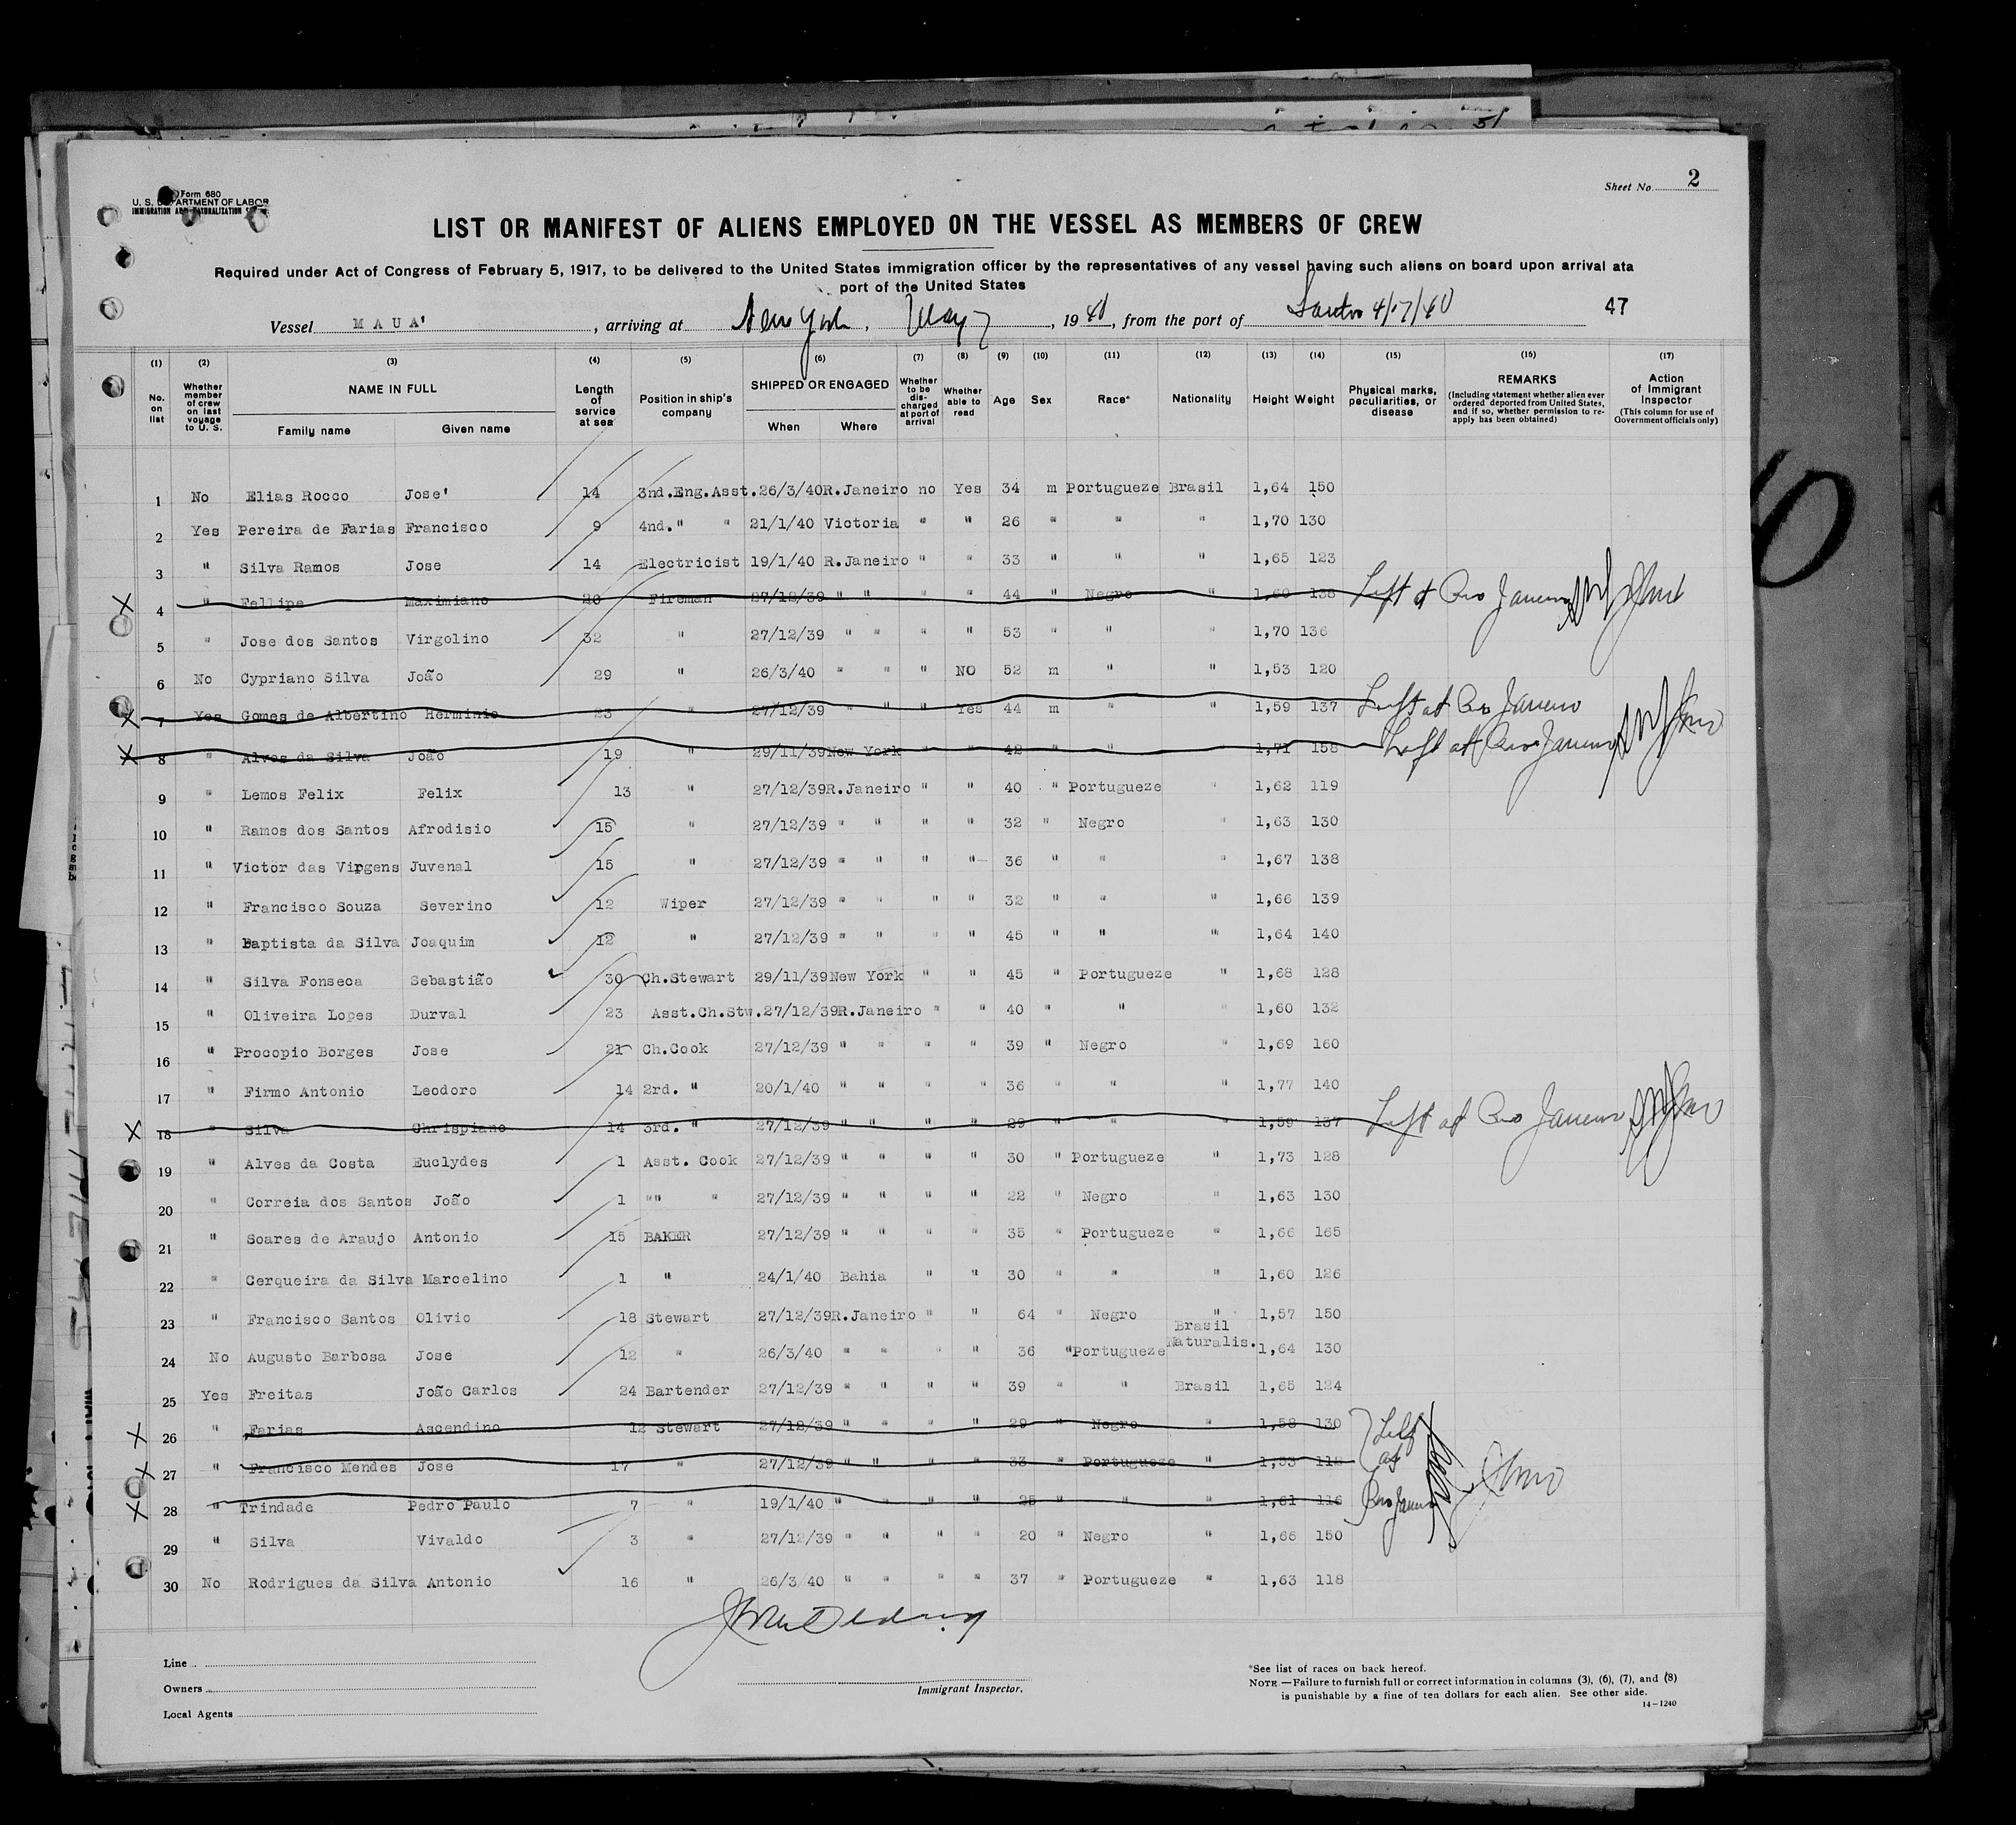 51
Form 680
U. S. DEPARTMENT OF LABOR
IMMIGRATION AND NATURALIZATION
Sheet No. 2
LIST OR MANIFEST OF ALIENS EMPLOYED ON THE VESSEL AS MEMBERS OF CREW
Required under Act of Congress of February 5, 1917, to be delivered to the United States immigration officer by the representatives of any vessel having such aliens on board upon arrival ata
port of the United States
Vessel MAUA', arriving at New York, May 7, 1940, from the port of Santos 4/17/40 47
(1) (2) (3) (4) (5) (6) (7) (8) (9) (10) (11) (12) (13) (14) (15) (16) (17)
No. on list Whether member of crew on last voyage to U. S. NAME IN FULL Family name Given name Length of service at sea Position in ship's company SHIPPED OR ENGAGED When Where Whether to be discharged at port of arrival Whether able to read Age Sex Race* Nationality Height Weight Physical marks, peculiarities, or disease REMARKS (Including statement whether alien ever ordered deported from United States, and if so, whether permission to reapply has been obtained) Action of Immigrant Inspector (This column for use of Government officials only)
1 No Elias Rocco Jose' 14 3nd.Eng.Asst. 26/3/40 R.Janeiro no Yes 34 m Portugueze Brasil 1,64 150
2 Yes Pereira de Farias Francisco 9 4nd. " " 21/1/40 Victoria " " 26 " " " 1,70 130
3 " Silva Ramos Jose 14 Electricist 19/1/40 R.Janeiro " " 33 " " " 1,65 123
X 4 " Fellipe Maximiano 20 Fireman 27/12/39 " " " " 44 " Negro " 1,60 138 Left at Rio Janeiro
5 " Jose dos Santos Virgolino 32 " 27/12/39 " " " " 53 " " " 1,70 136
6 No Cypriano Silva João 29 " 26/3/40 " " " NO 52 m " " 1,53 120
X 7 Yes Gomes de Albertino Herminio 23 " 27/12/39 " " " Yes 44 m " " 1,59 137 Left at Rio Janeiro
X 8 " Alves da Silva João 19 " 29/11/39 New York " " 42 " " " 1,71 158 Left at Rio Janeiro
9 " Lemos Felix Felix 13 " 27/12/39 R.Janeiro " " 40 " Portugueze " 1,62 119
10 " Ramos dos Santos Afrodisio 15 " 27/12/39 " " " " 32 " Negro " 1,63 130
11 " Victor das Virgens Juvenal 15 " 27/12/39 " " " " 36 " " " 1,67 138
12 " Francisco Souza Severino 12 Wiper 27/12/39 " " " " 32 " " " 1,66 139
13 " Baptista da Silva Joaquim 12 " 27/12/39 " " " " 45 " " " 1,64 140
14 " Silva Fonseca Sebastião 30 Ch.Stewart 29/11/39 New York " " 45 " Portugueze " 1,68 128
15 " Oliveira Lopes Durval 23 Asst.Ch.Stw. 27/12/39 R.Janeiro " " 40 " " " 1,60 132
16 " Procopio Borges Jose 21 Ch.Cook 27/12/39 " " " " 39 " Negro " 1,69 160
17 " Firmo Antonio Leodoro 14 2rd. " 20/1/40 " " " " 36 " " " 1,77 140
X 18 " Silva Chrispiano 14 3rd. " 27/12/39 " " " " 29 " " " 1,59 137 Left at Rio Janeiro
19 " Alves da Costa Euclydes 1 Asst. Cook 27/12/39 " " " " 30 " Portugueze " 1,73 128
20 " Correia dos Santos João 1 "" " 27/12/39 " " " " 22 " Negro " 1,63 130
21 " Soares de Araujo Antonio 15 BAKER 27/12/39 " " " " 35 " Portugueze " 1,66 165
22 " Cerqueira da Silva Marcelino 1 " 24/1/40 Bahia " " 30 " " " 1,60 126
23 " Francisco Santos Olivio 18 Stewart 27/12/39 R.Janeiro " " 64 " Negro " 1,57 150
24 No Augusto Barbosa Jose 12 " 26/3/40 " " " " 36 " Portugueze Brasil Naturalis. 1,64 130
25 Yes Freitas João Carlos 24 Bartender 27/12/39 " " " " 39 " " Brasil 1,65 124
X 26 " Farias Ascendino 12 Stewart 27/12/39 " " " " 29 " Negro " 1,58 130 Left
X 27 " Francisco Mendes Jose 17 " 27/12/39 " " " " 33 " Portugueze " 1,53 118 at
X 28 " Trindade Pedro Paulo 7 " 19/1/40 " " " " 25 " " " 1,61 116 Rio Janeiro
29 " Silva Vivaldo 3 " 27/12/39 " " " " 20 " Negro " 1,66 150
30 No Rodrigues da Silva Antonio 16 " 26/3/40 " " " " 37 " Portugueze " 1,63 118
Line
Owners
Local Agents
Immigrant Inspector.
*See list of races on back hereof.
NOTE.—Failure to furnish full or correct information in columns (3), (6), (7), and (8)
is punishable by a fine of ten dollars for each alien. See other side.
14—1240